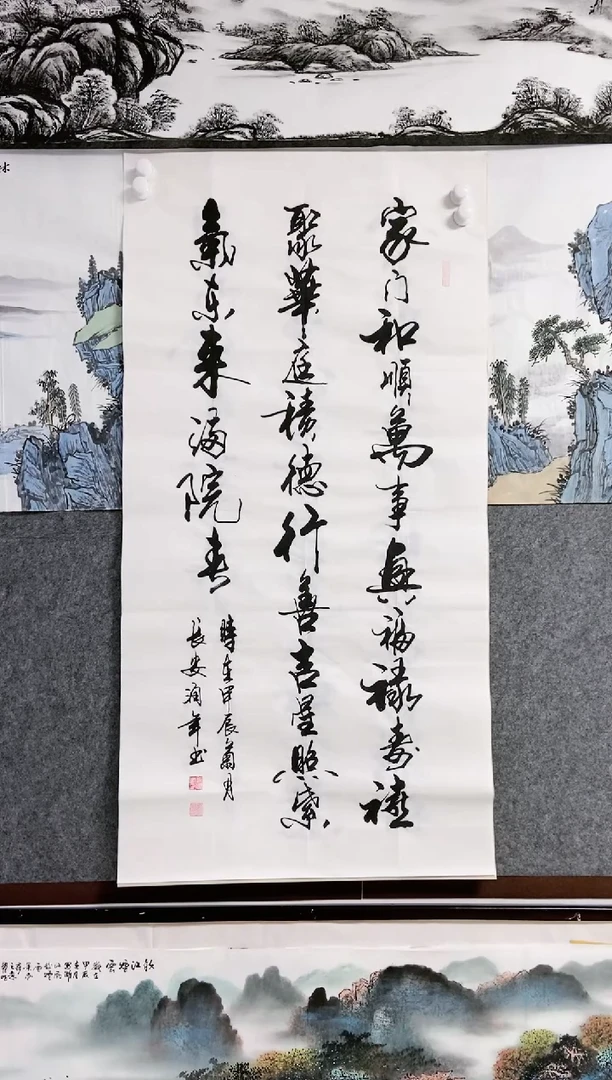 家门和順萬事興福禄寿禧
聚華庭積德行善吉星照紫
氣东来满院春
時在甲辰菊月
長安润年书